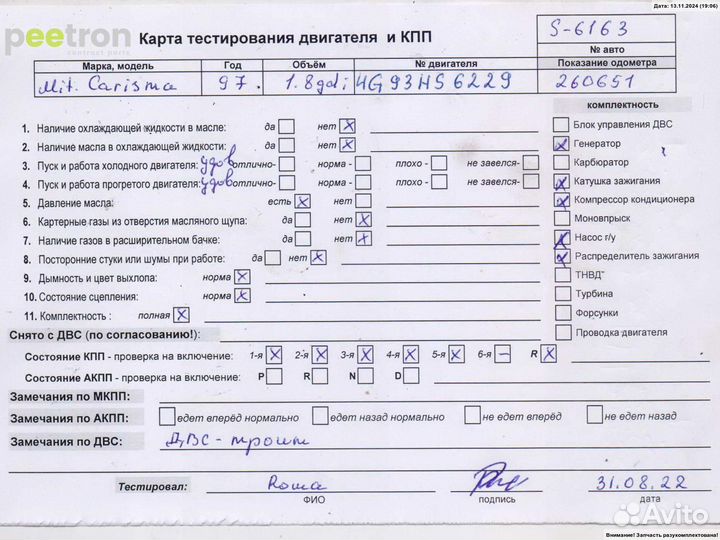 Дата: 13.11.2024 (19:06)
peetron
contract parts
Карта тестирования двигателя и КПП
S-6163
№ авто
Марка, модель Год Объём № двигателя Показание одометра
Mit. Carisma 97. 1.8gdi 4G93HS6229 260651
комплектность
1. Наличие охлаждающей жидкости в масле: да нет X
Блок управления ДВС
2. Наличие масла в охлаждающей жидкости: да нет X
Генератор
3. Пуск и работа холодного двигателя: удов отлично- норма - плохо - не завелся-
Карбюратор
4. Пуск и работа прогретого двигателя: удов отлично- норма - плохо - не завелся-
Катушка зажигания
5. Давление масла: есть X нет
Компрессор кондиционера
6. Картерные газы из отверстия масляного щупа: да нет X
Моновпрыск
7. Наличие газов в расширительном бачке: да нет X
Насос г/у
8. Посторонние стуки или шумы при работе: да нет X
Распределитель зажигания
9. Дымность и цвет выхлопа: норма X
ТНВД
10. Состояние сцепления: норма X
Турбина
11. Комплектность : полная X
Форсунки
Снято с ДВС (по согласованию!):
Проводка двигателя
Состояние КПП - проверка на включение: 1-я X 2-я X 3-я X 4-я X 5-я X 6-я – R X
Состояние АКПП - проверка на включение: P R N D
Замечания по МКПП:
Замечания по АКПП: едет вперёд нормально едет назад нормально не едет вперёд не едет назад
Замечания по ДВС: ДВС - троит
Тестировал: Roma 31.08.22
ФИО подпись дата
Avito
Внимание! Запчасть разукомплектована!